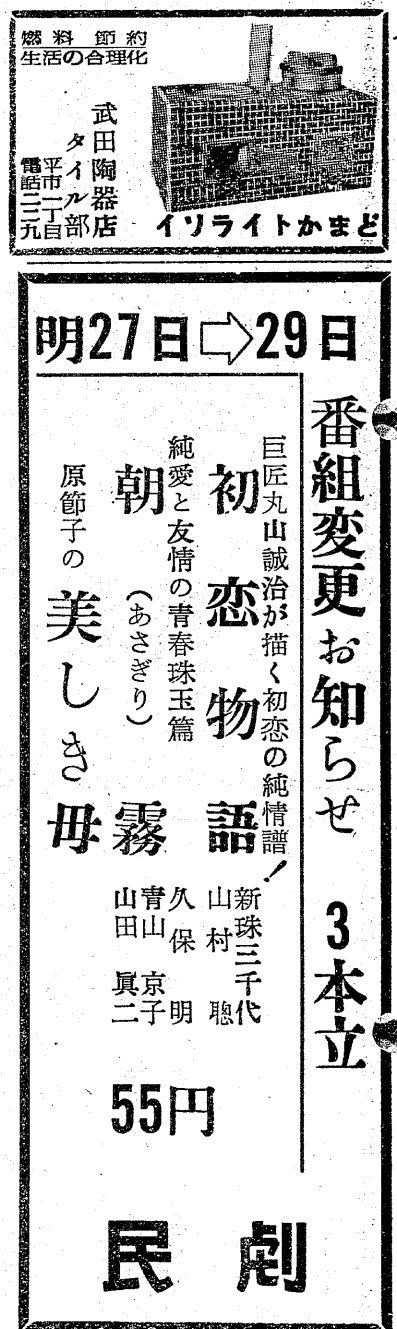 燃料節約
生活の合理化
武田陶器店
タイル部
平市一丁目
電話二二九
イソライトかまど
明27日⇨29日
番組変更お知らせ 3本立
巨匠丸山誠治が描く初恋の純情譜!
初恋物語
新珠三千代
山村聰
純愛と友情の青春珠玉篇
朝霧
(あさぎり)
久保明
青山京子
山田眞二
原節子の美しき母
55円
民劇